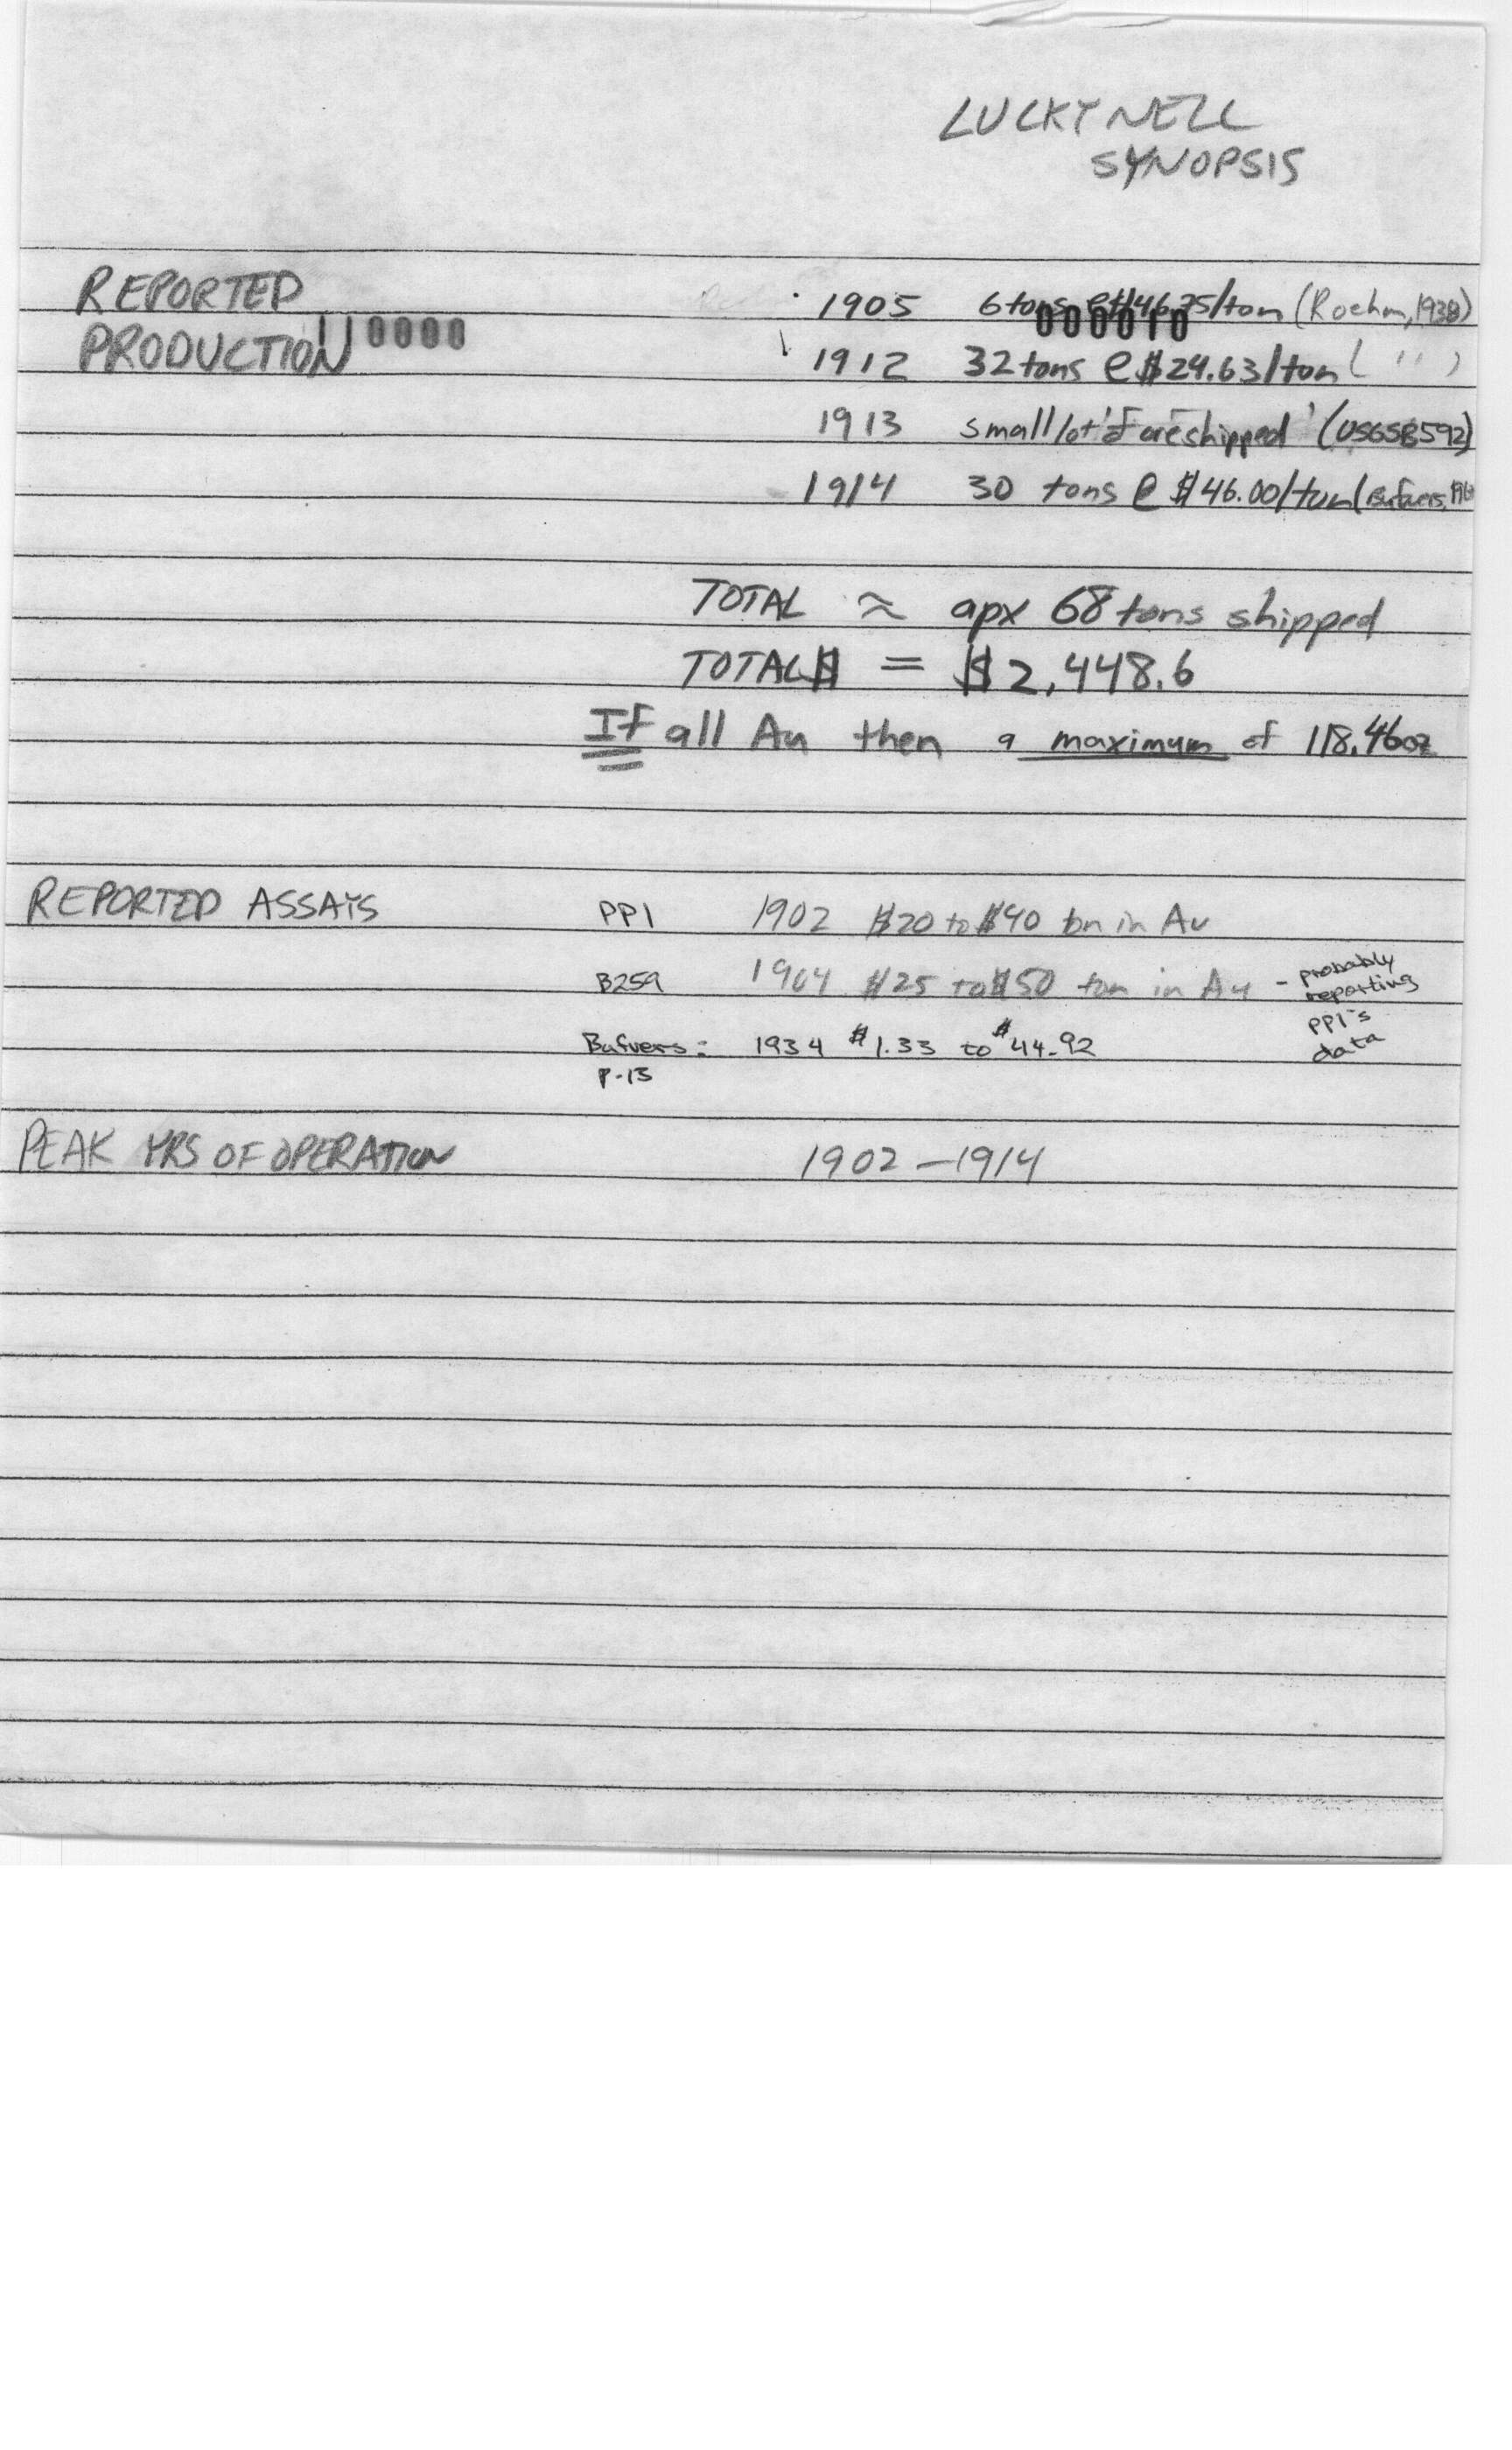 LUCKY NELL
SYNOPSIS
REPORTED
PRODUCTION
110000
1905 6 tons @ $46.75/ton (Roehm, 1938)
000010
1912 32 tons @ $29.63/ton ( " )
1913 small lot 'of ore shipped' (USGSB592)
1914 30 tons @ $46.00/ton (Bufvers, 196
TOTAL ≈ apx 68 tons shipped
TOTAL $ = $2,448.6
If all Au then a maximum of 118.46oz
REPORTED ASSAYS PP1 1902 $20 to $40 ton in Au
B259 1904 $25 to $50 ton in Au - probably
reporting
PP1's
data
Bufvers: 1934 $1.33 to $44.92
P-13
PEAK YRS OF OPERATION 1902-1914